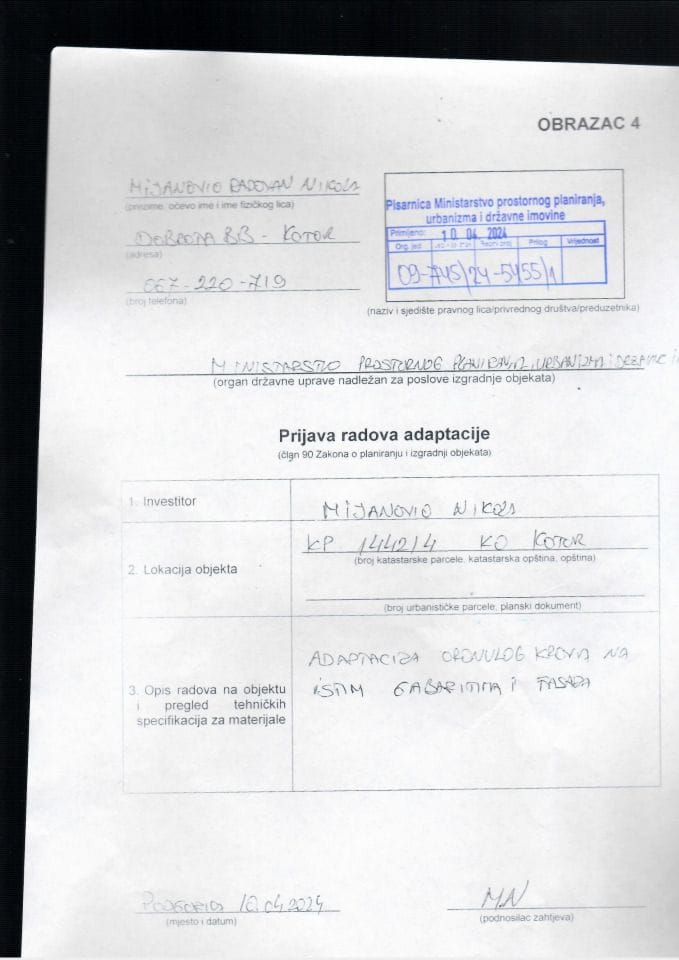 OBRAZAC 4
MIJANOVIĆ RADOVAN NIKOLA
(prezime, očevo ime i ime fizičkog lica)
DOBROTA BB - KOTOR
(adresa)
067-220-719
(broj telefona)
Pisarnica Ministarstvo prostornog planiranja,
urbanizma i državne imovine
Primljeno: 10 04 2024
Org. jed. Prilog Vrijednost
09-745/24-5455/1
(naziv i sjedište pravnog lica/privrednog društva/preduzetnika)
MINISTARSTVO PROSTORNOG PLANIRANJA, URBANIZMA I DRŽAVNE
(organ državne uprave nadležan za poslove izgradnje objekata)
Prijava radova adaptacije
(član 90 Zakona o planiranju i izgradnji objekata)
1. Investitor
MIJANOVIĆ NIKOLA
2. Lokacija objekta
KP 1442/4 KO KOTOR
(broj katastarske parcele, katastarska opština, opština)
(broj urbanističke parcele, planski dokument)
3. Opis radova na objektu
i pregled tehničkih
specifikacija za materijale
ADAPTACIJA ORONULOG KROVA NA
ISTIM GABARITIMA I FASADA
PODGORICA 10.04.2024
(mjesto i datum)
MN
(podnosilac zahtjeva)